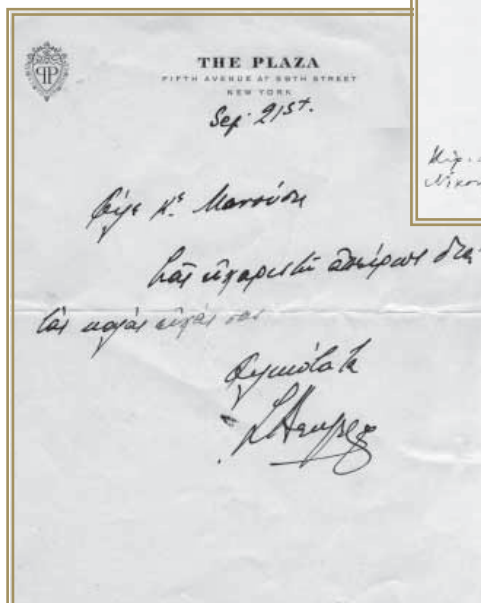 THE PLAZA
FIFTH AVENUE AT 59TH STREET
NEW YORK
Sep. 21st.
Φίλε Κε Μανούση
Σᾶς εὐχαριστῶ ἀπείρως διὰ
τὰς καλάς εὐχάς σας
Φιλικώτατα